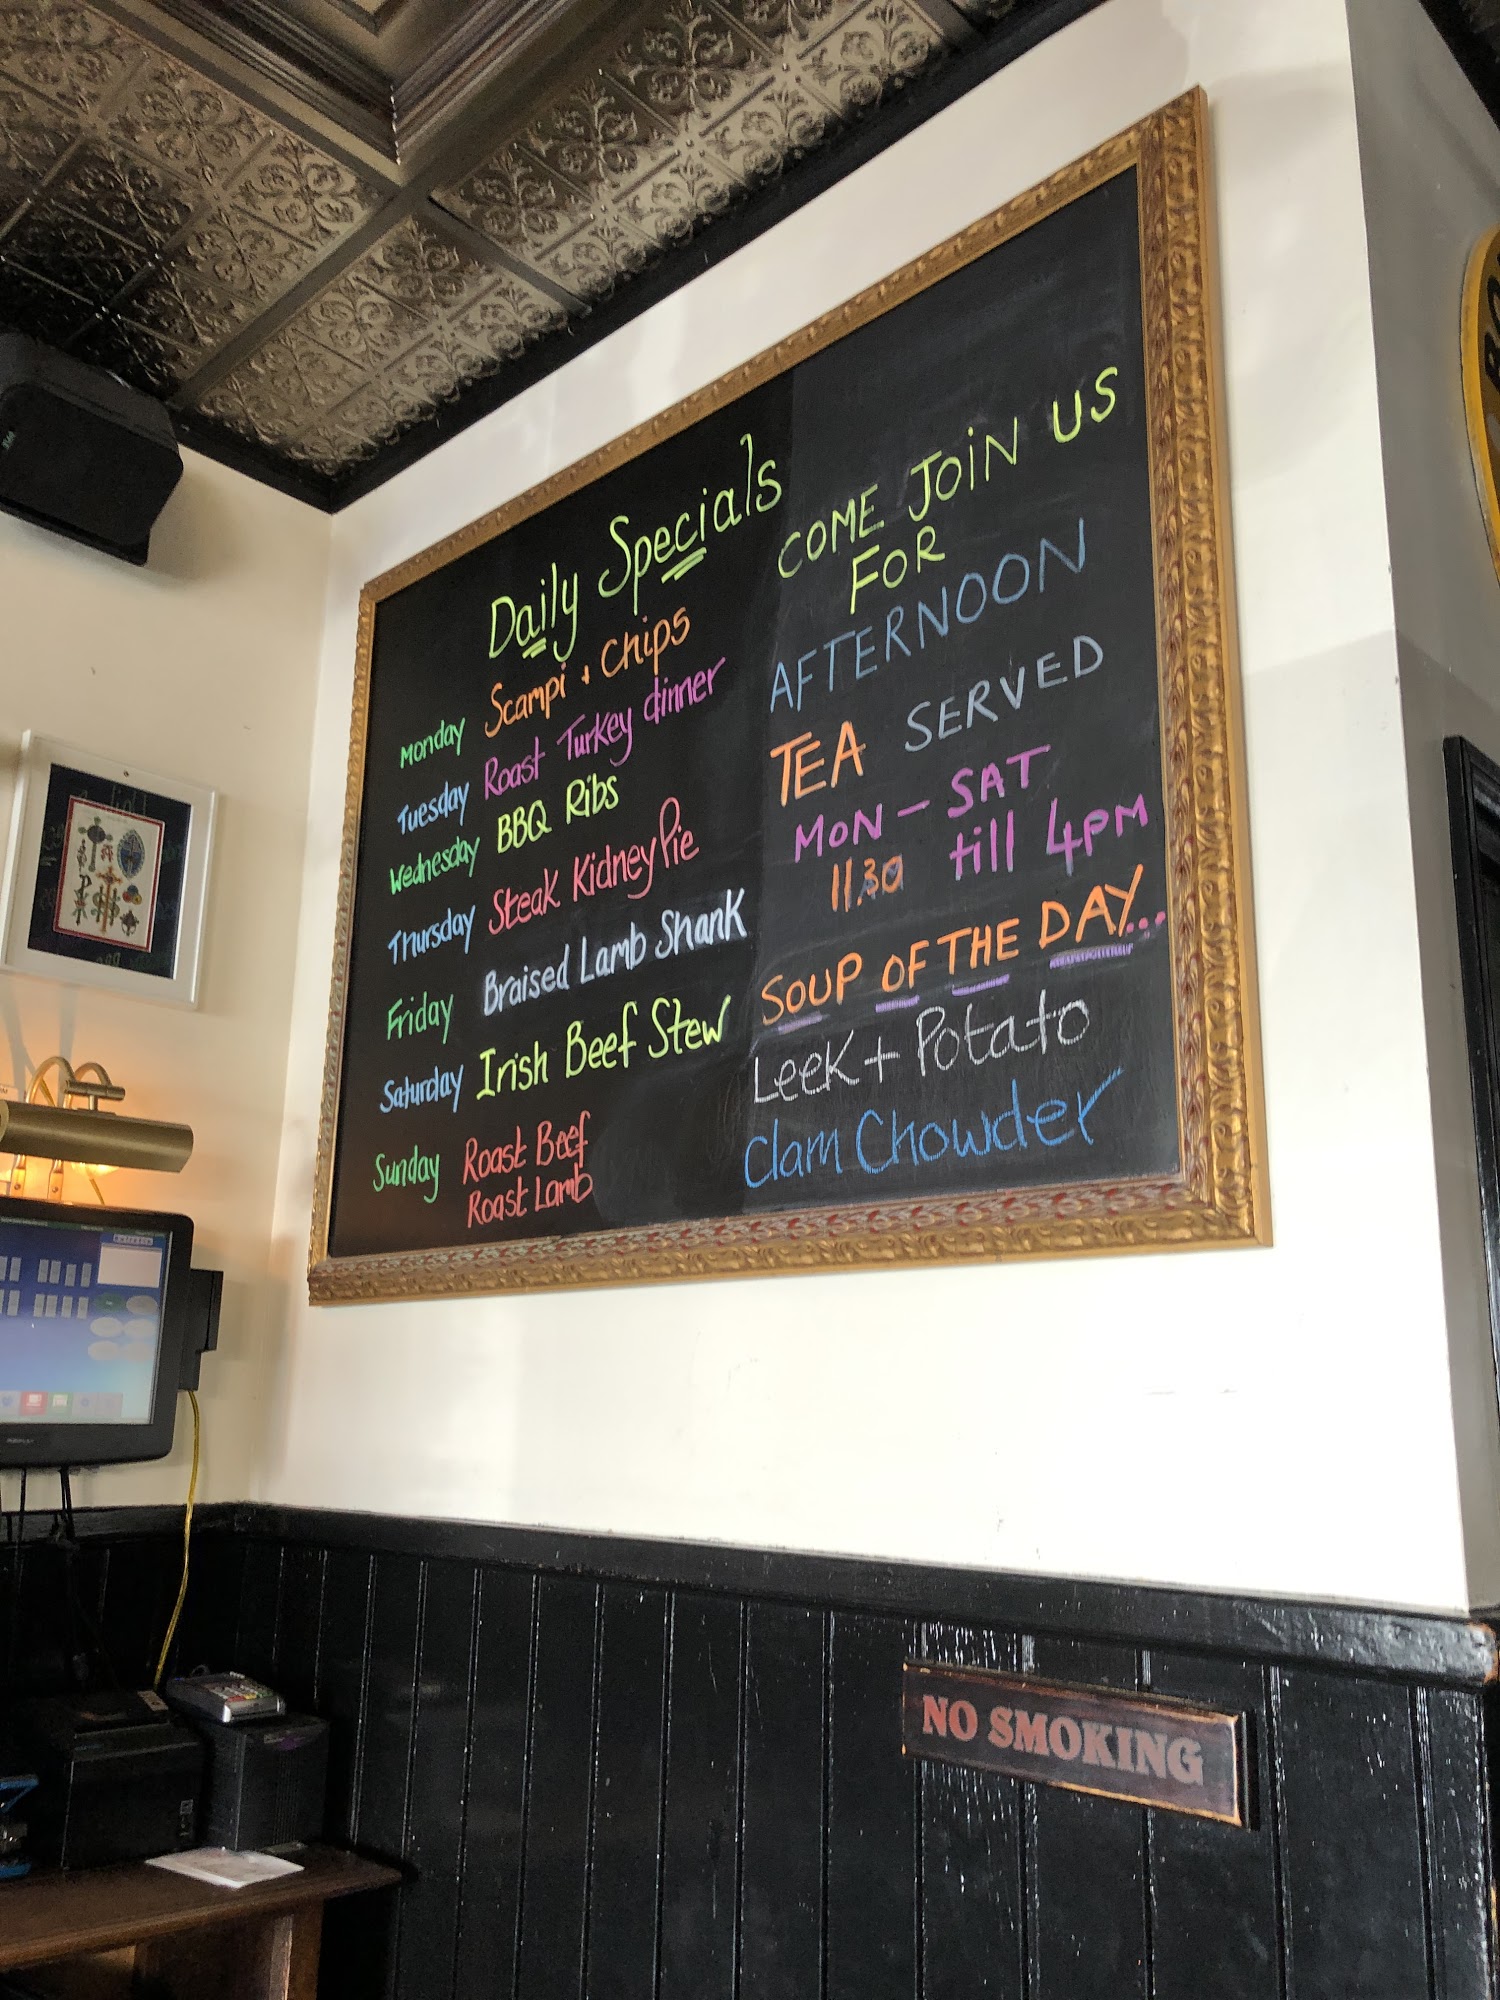 Daily Specials
Monday Scampi + Chips
Tuesday Roast Turkey dinner
Wednesday BBQ Ribs
Thursday Steak Kidney Pie
Friday Braised Lamb Shank
Saturday Irish Beef Stew
Sunday Roast Beef
Roast Lamb
COME JOIN US
FOR
AFTERNOON
TEA SERVED
MON - SAT
11.30 till 4PM
SOUP OF THE DAY...
Leek + Potato
Clam Chowder
NO SMOKING